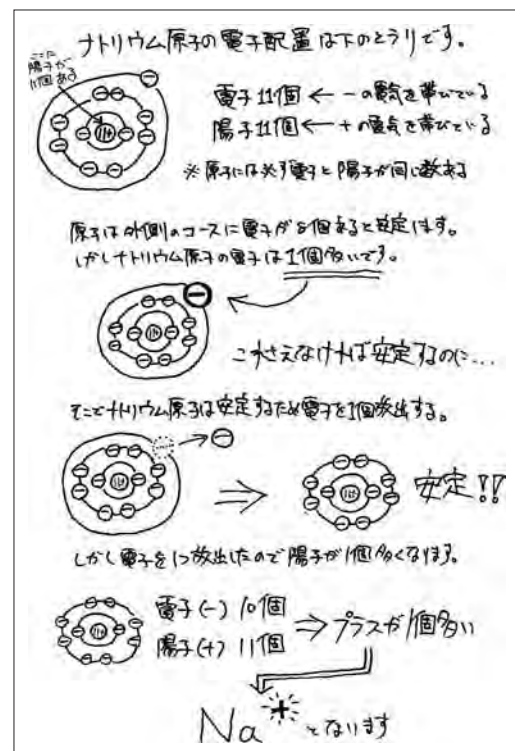 ナトリウム原子の電子配置は下のとうりです。
ここに
陽子が
11個ある
11+
電子11個 ← −の電気を帯びている
陽子11個 ← +の電気を帯びている
※原子には必ず電子と陽子が同じ数ある
原子は外側のコースに電子が8個あると安定します。
しかしナトリウム原子の電子は1個多いです。
11+
これさえなければ安定するのに…
そこでナトリウム原子は安定するため電子を1個放出する。
11+
⇒
11+
安定!!
しかし電子を1つ放出したので陽子が1個多くなります。
11+
電子(−) 10個
陽子(+) 11個
⇒ プラスが1個多い
Na⁺ となります